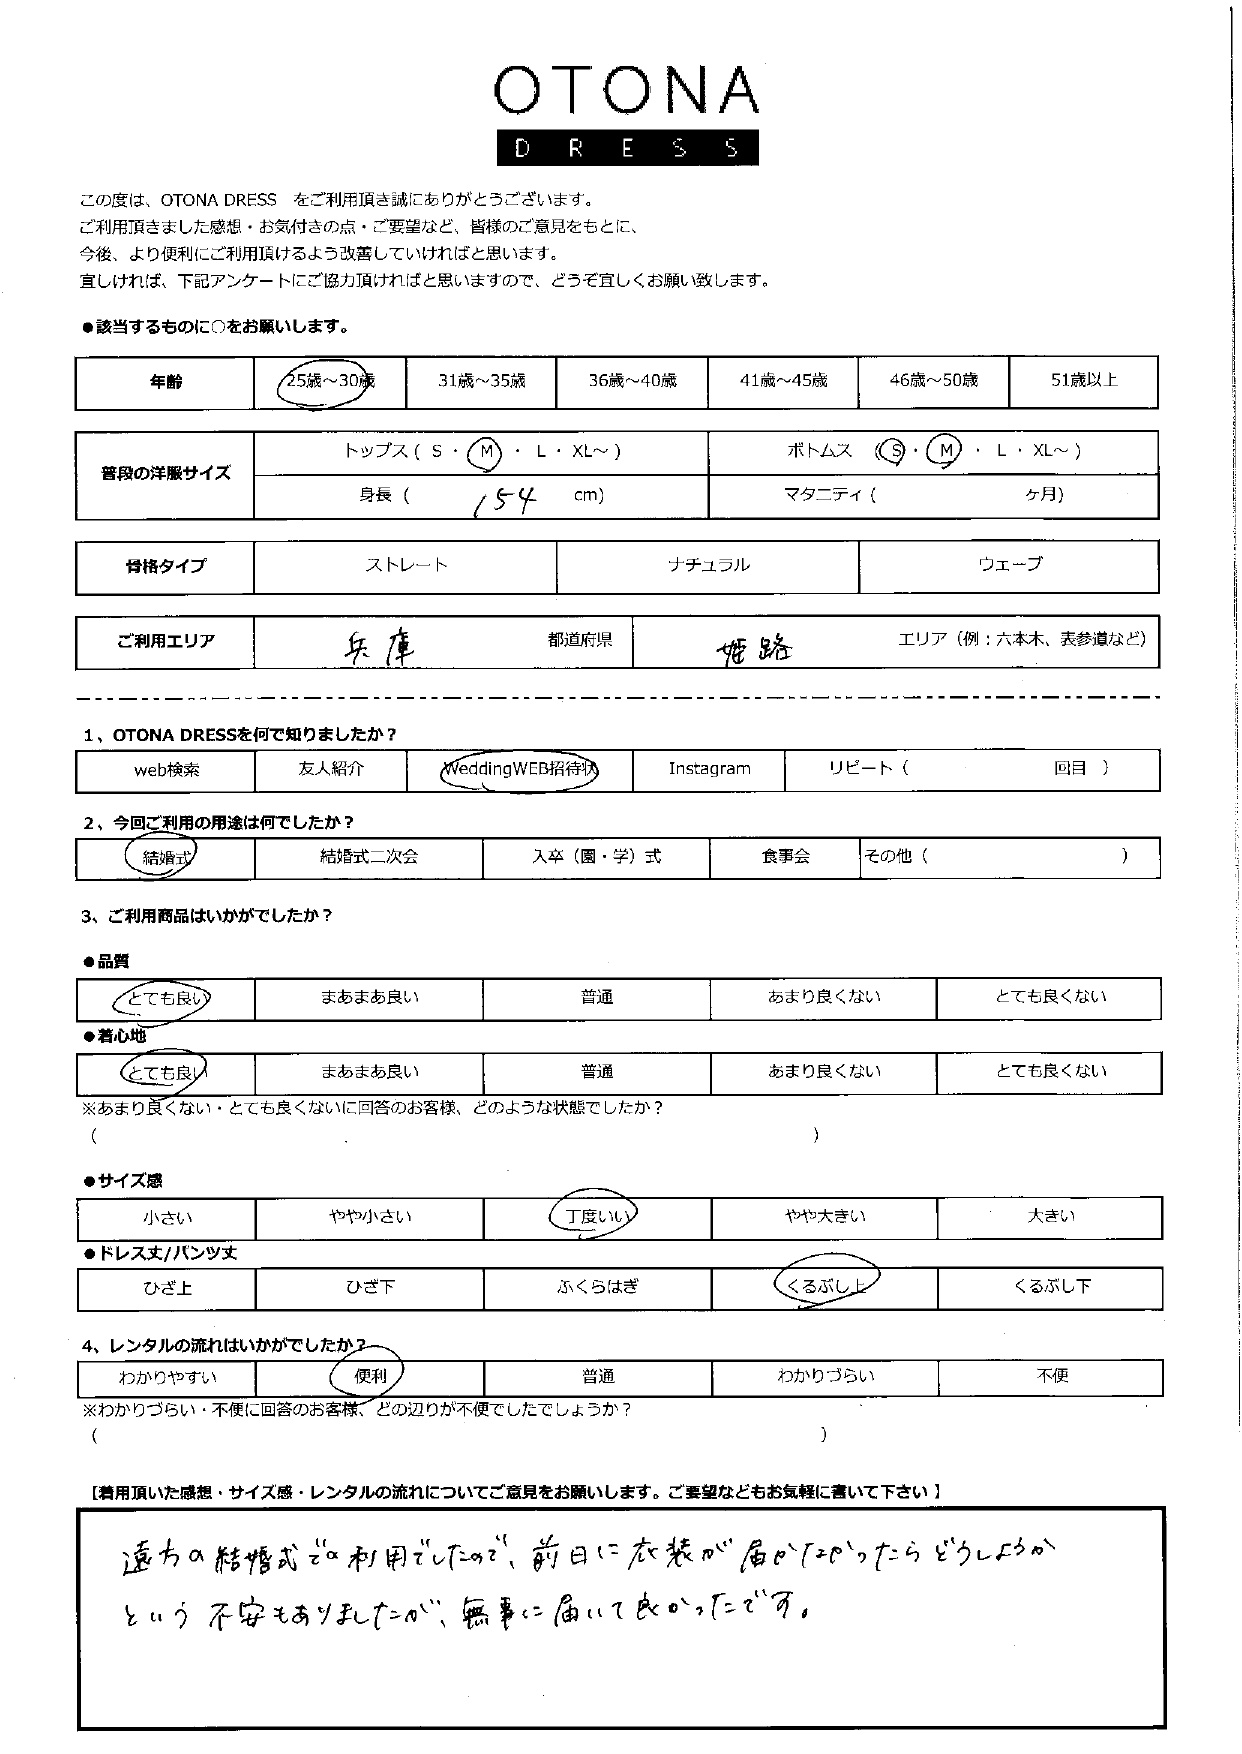 OTONA
DRESS
この度は、OTONA DRESS　をご利用頂き誠にありがとうございます。
ご利用頂きました感想・お気付きの点・ご要望など、皆様のご意見をもとに、
今後、より便利にご利用頂けるよう改善していければと思います。
宜しければ、下記アンケートにご協力頂ければと思いますので、どうぞ宜しくお願い致します。
●該当するものに○をお願いします。
年齢 25歳～30歳 31歳～35歳 36歳～40歳 41歳～45歳 46歳～50歳 51歳以上
普段の洋服サイズ トップス ( S ・ M ・ L ・ XL～ ) ボトムス ( S ・ M ・ L ・ XL～ )
身長 ( 154 cm) マタニティ ( ケ月)
骨格タイプ ストレート ナチュラル ウェーブ
ご利用エリア 兵庫 都道府県 姫路 エリア（例：六本木、表参道など）
1、OTONA DRESSを何で知りましたか？
web検索 友人紹介 WeddingWEB招待状 Instagram リピート（ 回目 ）
2、今回ご利用の用途は何でしたか？
結婚式 結婚式二次会 入卒（園・学）式 食事会 その他（ ）
3、ご利用商品はいかがでしたか？
●品質
とても良い まあまあ良い 普通 あまり良くない とても良くない
●着心地
とても良い まあまあ良い 普通 あまり良くない とても良くない
※あまり良くない・とても良くないに回答のお客様、どのような状態でしたか？
( )
●サイズ感
小さい やや小さい 丁度いい やや大きい 大きい
●ドレス丈/パンツ丈
ひざ上 ひざ下 ふくらはぎ くるぶし上 くるぶし下
4、レンタルの流れはいかがでしたか？
わかりやすい 便利 普通 わかりづらい 不便
※わかりづらい・不便に回答のお客様、どの辺りが不便でしたでしょうか？
( )
【着用頂いた感想・サイズ感・レンタルの流れについてご意見をお願いします。ご要望などもお気軽に書いて下さい】
遠方の結婚式での利用でしたので、前日に衣装が届かなかったらどうしようか
という不安もありましたが、無事に届いて良かったです。